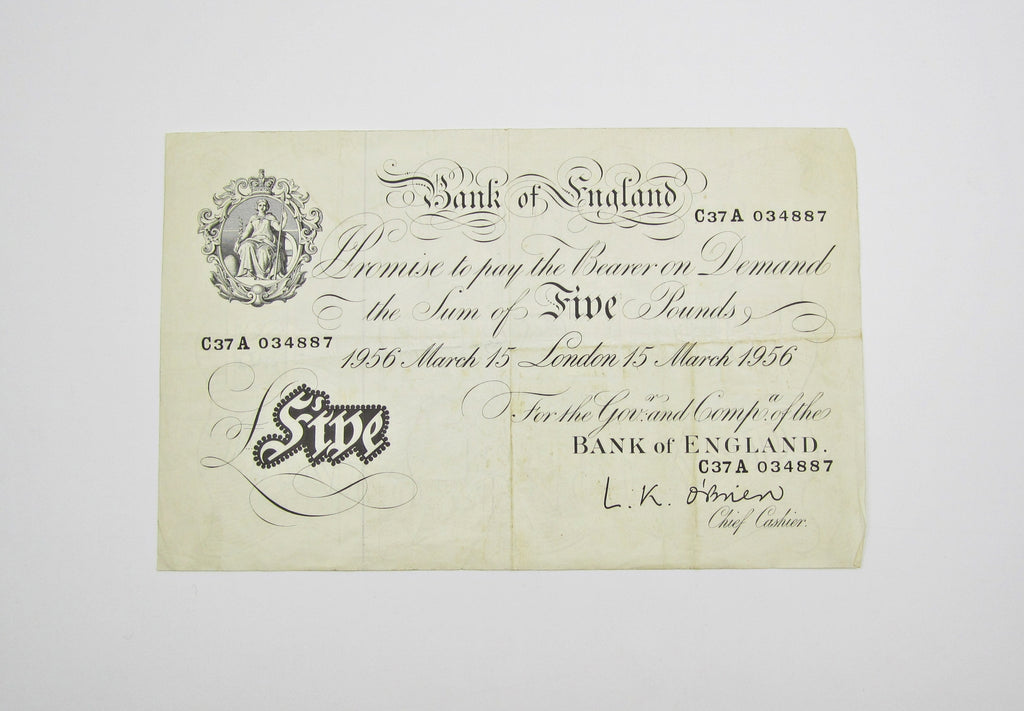 Bank of England
C37A 034887
I Promise to pay the Bearer on Demand
the Sum of Five Pounds
C37A 034887
1956 March 15 London 15 March 1956
£Five
For the Govr. and Compa. of the
BANK of ENGLAND.
C37A 034887
L. K. O'Brien
Chief Cashier.